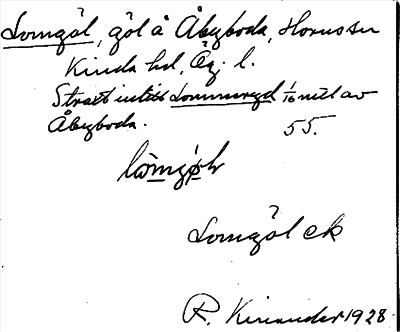 Lomgöl, göl å Åbyboda, Horns sn
Kinda hd, Ög. l.
Strax intill Lommaryd 1/16 mil av
Åbyboda. 55.
Lomgöl ek
R. Kinander 1928